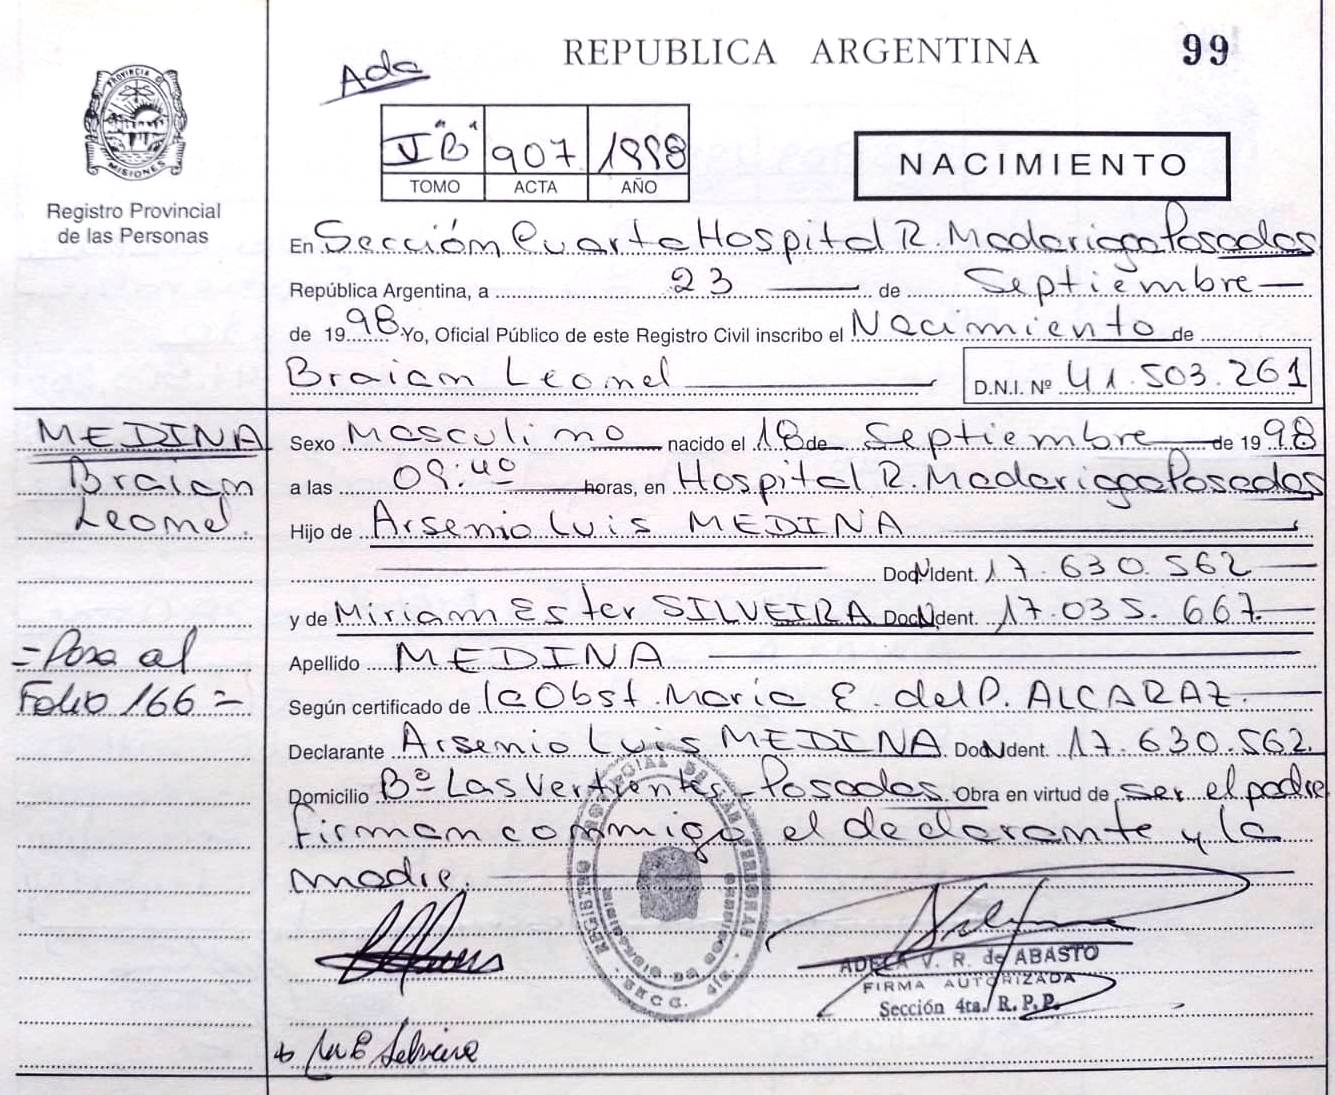 REPUBLICA ARGENTINA
99
Ada
PROVINCIA D
MISIONES
"B" 907 1998
TOMO ACTA AÑO
NACIMIENTO
Registro Provincial
de las Personas
En Sección Cuarta Hospital R. Madariaga Posadas
República Argentina, a 23 de Septiembre
de 1998 Yo, Oficial Público de este Registro Civil inscribo el Nacimiento de
Braian Leonel D.N.I. Nº 41.503.261
MEDINA
Braian
Leonel.
Sexo Masculino nacido el 18 de Septiembre de 1998
a las 09:40 horas, en Hospital R. Madariaga Posadas
Hijo de Arsenio Luis MEDINA
Doc. Ident. 17.630.562
y de Miriam Ester SILVEIRA Doc. Ident. 17.035.667.
Apellido MEDINA
Según certificado de la Obst. Maria E. del P. ALCARAZ.
Declarante Arsenio Luis MEDINA Doc. Ident. 17.630.562.
Domicilio Bº Las Vertientes - Posadas. Obra en virtud de ser el padre
Firman conmigo el declarante y la
madre.
=Pasa al
Folio 166=
REGISTRO PROVINCIAL DE LAS PERSONAS
SECC. 4ta.
ADELA V. R. de ABASTO
FIRMA AUTORIZADA
Sección 4ta. R. P. P.